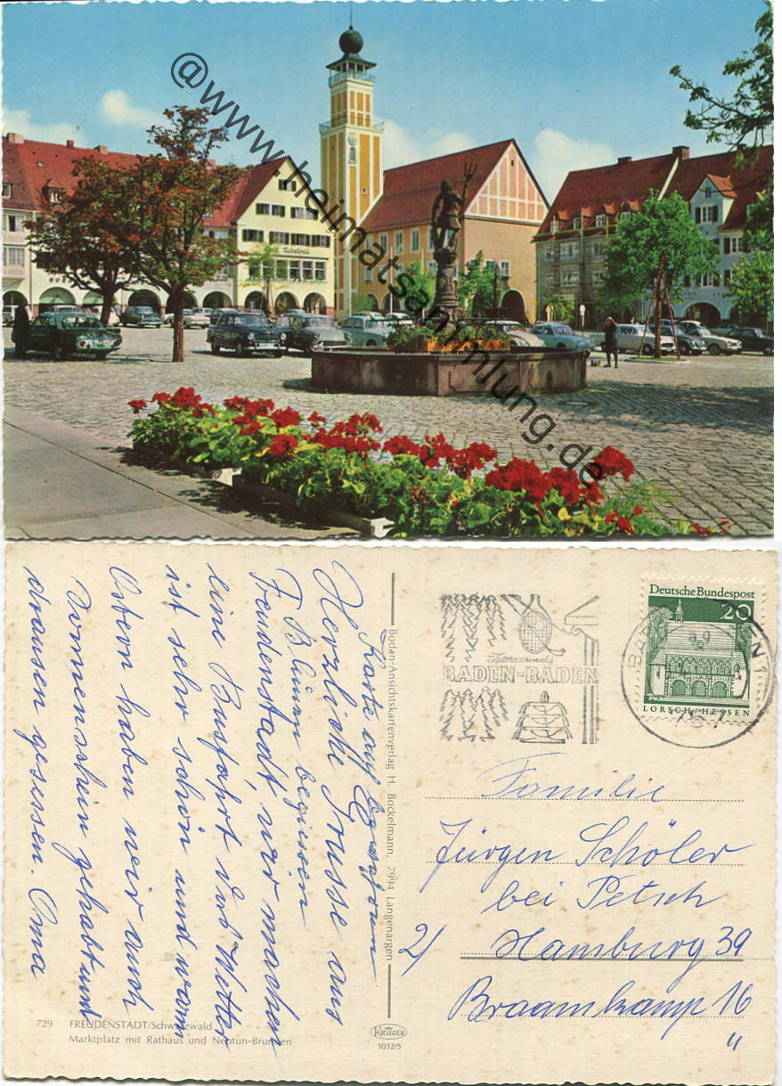 @www.heimatsammlung.de
Karte auf
Herzliche Grüsse aus
F. Blumen begiessen
Freudenstadt wir machen
eine Busfahrt das Wetter
ist sehr schön und warm
Ostern haben wir auch
Sonnenschein gehabt und
draussen gesessen. Oma
729 FREUDENSTADT/Schwarzwald
Marktplatz mit Rathaus und Neptun-Brunnen
Bodan-Ansichtskartenverlag H. Bockelmann, 7994 Langenargen
KRÜGER
1032/5
BADEN-BADEN
Deutsche Bundespost
20
LORSCH/HESSEN
BAD
N 1
Familie
Jürgen Schöler
bei Petsch
2/ Hamburg 39
Braamkamp 16